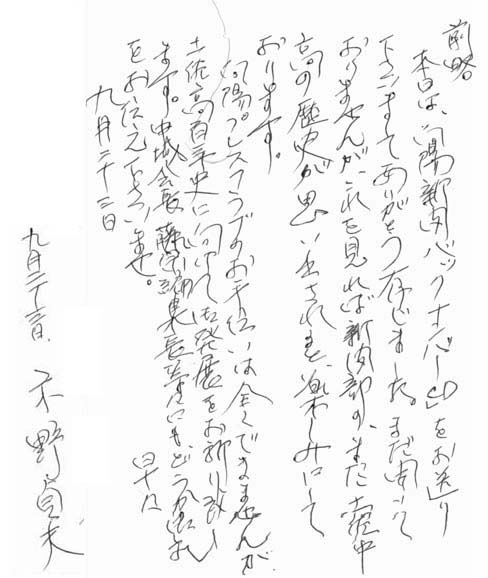 前略
本日は、向陽新聞バックナンバーCDをお送り
下さいましてありがとう存じました。まだ聞いて
おりませんが、これを見れば新聞部の、また土佐中
高の歴史が思い出されると、楽しみにして
おります。
向陽プレスクラブのお手伝いは全くできませんが、
土佐高百年史に向けて御発展をお祈り致し
ます。中城会長、編集長等にも、どうか宜しく
をお伝え下さいませ。
早々
九月二十三日
九月二十三日、 禾野貞夫